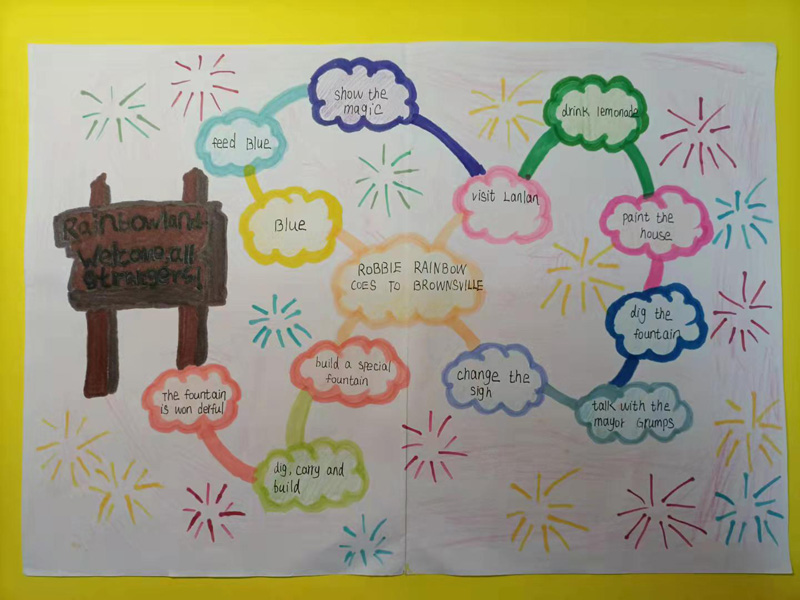 show the
magic
drink lemonade
feed Blue
visit Lanlan
Rainbowland
Welcome, all
strangers!
Blue
paint the
house
ROBBIE RAINBOW
COES TO BROWNSVILLE
dig the
fountain
build a special
fountain
change the
sigh
The fountain
is won derful
talk with the
mayor Grumps
dig, carry and
build